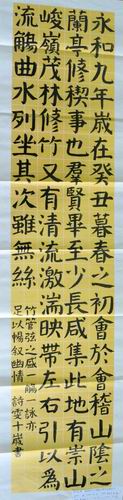 永和九年歲在癸丑暮春之初會於會稽山陰之
蘭亭修稧事也群賢畢至少長咸集此地有崇山
峻嶺茂林修竹又有清流激湍映帶左右引以為
流觴曲水列坐其次雖無絲
竹管弦之盛一觴一詠亦
足以暢叙幽情 詩雯十歲書